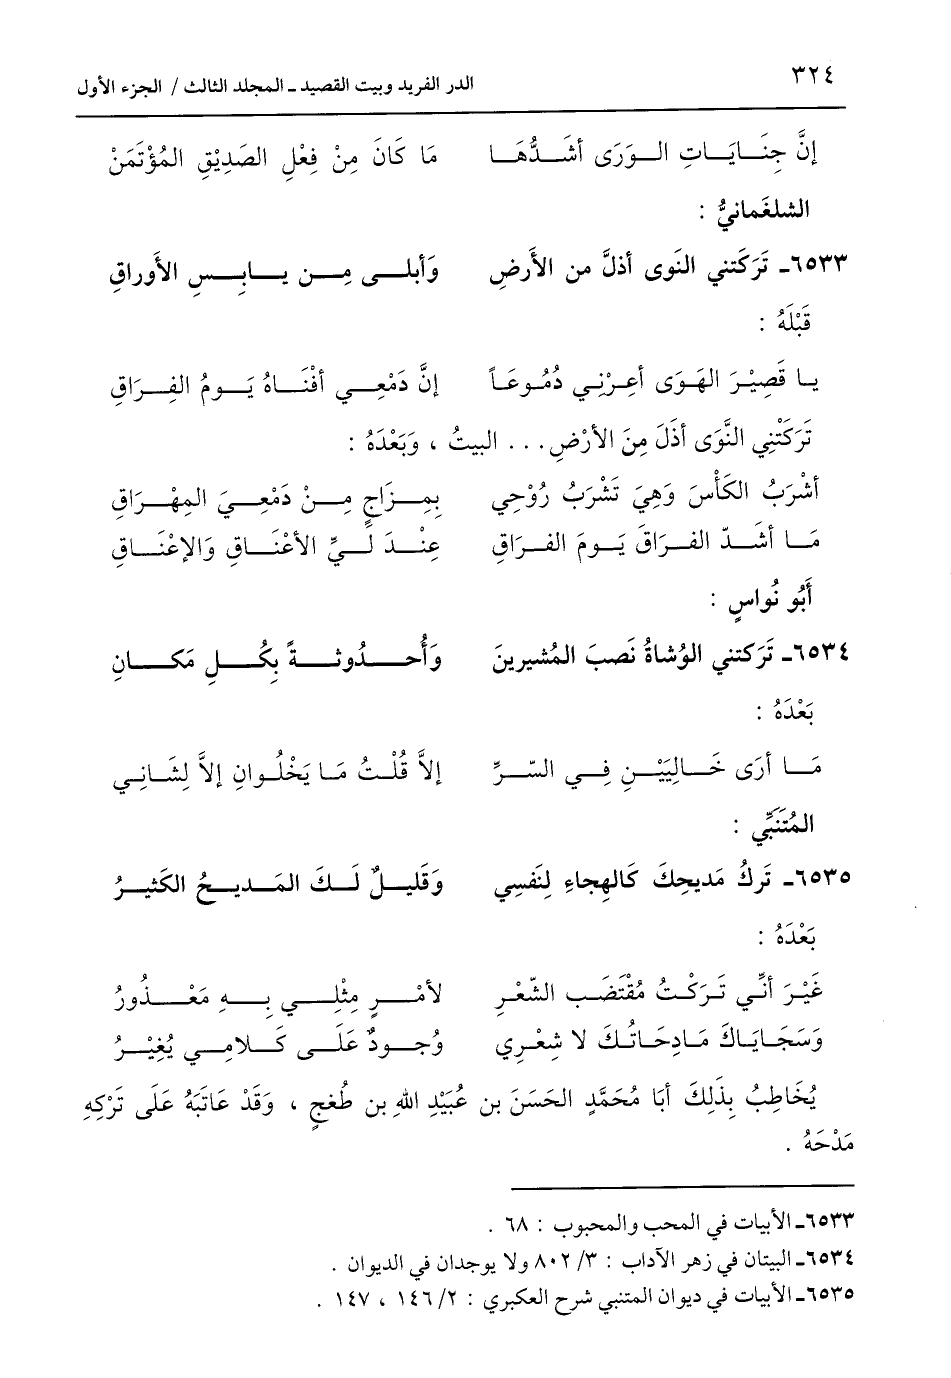 ٣٢٤ الدر الفريد وبيت القصيد ـ المجلد الثالث / الجزء الأول
إنَّ جِنَـايَـاتِ الـوَرَى أشَـدُّهَـا مَا كَانَ مِنْ فِعْلِ الصَدِيْقِ المُؤْتَمَنْ
الشلغَمانيُّ :
٦٥٣٣ـ تَرَكَتني النَوى أذلَّ من الأَرضِ وَأبلـى مِـن يـابِـسِ الأوراقِ
قَبْلَهُ :
يـا قَصِيْـرَ الهَـوَى أعِـرْنِـي دُمُـوعَـاً إنَّ دَمْعِـي أفْنَـاهُ يَـومُ الفِـرَاقِ
تَرَكَتْنِي النَّوَى أذَلَ مِنَ الأرْضِ. . . البيتُ ، وَبَعْدَهُ :
أشْرَبُ الكَأْسَ وَهِيَ تَشْرَبُ رُوْحِي بِمِـزَاجٍ مِـنْ دَمْعِـيَ المِهْـرَاقِ
مَـا أشَـدّ الفـرَاقَ يَـومَ الفـرَاقِ عِنْـدَ لَـيِّ الأعْنَـاقِ وَالإعْنَـاقِ
أَبُو نُواسٍ :
٦٥٣٤ـ تَرَكتني الوُشاةُ نَصبَ المُشيرينَ وَأُحـدُوثـةً بِكُـلِ مَكـانِ
بَعْدَهُ :
مَـا أرَى خَـالِيَيْـنِ فِـي السّـرِّ إلاَّ قُلْـتُ مَـا يَخْلُـوانِ إلاَّ لِشَـانِـي
المُتَنَبِّي :
٦٥٣٥ـ تَركُ مَديحِكَ كَالهِجاءِ لِنَفسِي وَقَليـلٌ لَـكَ المَـديـحُ الكَثيـرُ
بَعْدَهُ :
غَيْـرَ أنّـي تَـرَكْـتُ مُقْتَضَـبَ الشّعْـرِ لأمْـرٍ مِثْلِـي بِـهِ مَعْـذُورُ
وَسَجَـايَـاكَ مَـادِحَـاتُـكَ لا شِعْـرِي وُجـودٌ عَلَـى كَـلامِـي يُغِيْـرُ
يُخَاطِبُ بِذَلِكَ أبَا مُحَمَّدٍ الحَسَنَ بن عُبَيْدِ اللهِ بن طُغجٍ ، وَقَدْ عَاتَبَهُ عَلَى تَرْكِهِ
مَدْحَهُ .
٦٥٣٣ـ الأبيات في المحب والمحبوب : ٦٨ .
٦٥٣٤ـ البيتان في زهر الآداب : ٣/ ٨٠٢ ولا يوجدان في الديوان .
٦٥٣٥ـ الأبيات في ديوان المتنبي شرح العكبري : ٢/ ١٤٦ ، ١٤٧ .